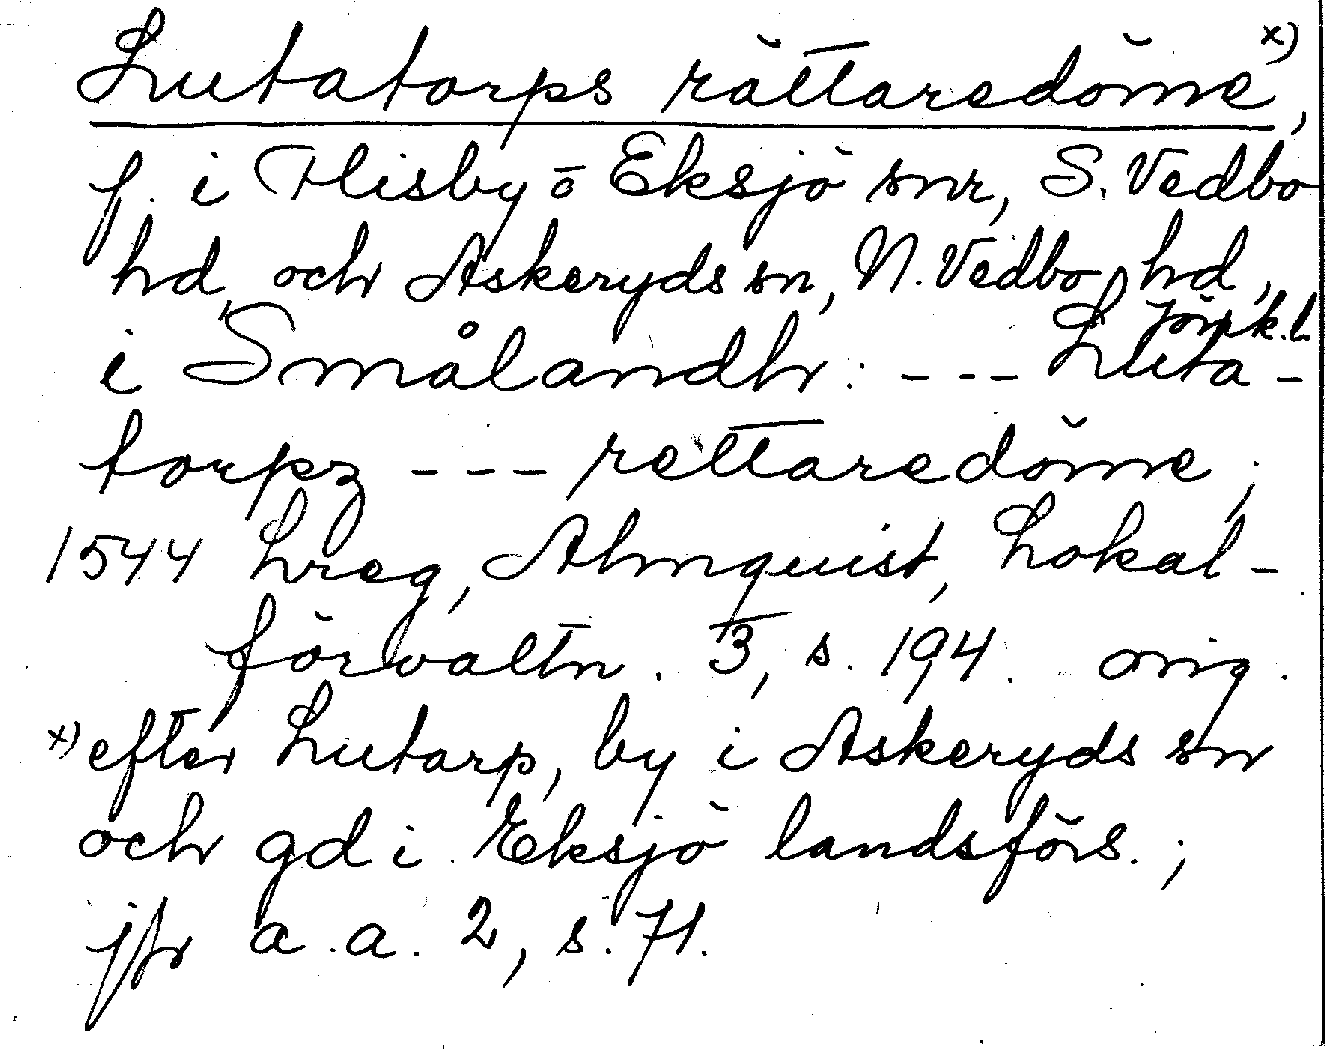 Lutatorps rättaredöme x),
f. i Flisby o Eksjö snr, S. Vedbo
hd, och Askeryds sn, N. Vedbo hd,
Jönk.l.
i Smålandh: --- Luta-
torpz --- rettaredöme;
1544 Lreg, Almquist, Lokal-
förvaltn. 3, s. 194. orig.
x) efter Lutarp, by i Askeryds sn
och gd i Eksjö landsförs.;
jfr a.a. 2, s. 71.